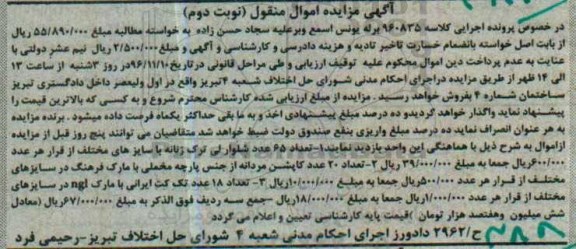 آگهی مزایده اموال منقول (نوبت دوم)
در خصوص پرونده اجرایی کلاسه ۹۶۰۸۳۵ برله یونس اسمع وبرعلیه سجاد حسن زاده به خواسته مطالبه مبلغ ۵۵/۸۹۰/۰۰۰ ریال
از بابت اصل خواسته بانضمام خسارت تاخیر تادیه و هزینه دادرسی و کارشناسی و آگهی و مبلغ ۲/۵۰۰/۰۰۰ ریال نیم عشر دولتی با
عنایت به عدم پرداخت دین اموال محکوم علیه توقیف ارزیابی و طی مراحل قانونی در تاریخ ۹۶/۱۱/۱۰ در روز ۳شنبه از ساعت ۱۳
الی ۱۴ ظهر از طریق مزایده دراجرای احکام مدنی شورای حل اختلاف شعبه ۴ تبریز واقع در اول ولیعصر داخل دادگستری تبریز
ساختمان شماره ۴ بفروش خواهد رسید. مزایده از مبلغ ارزیابی شده کارشناس محترم شروع و به کسی که بالاترین قیمت را
پیشنهاد نماید واگذار خواهد گردیدو ده درصد مبلغ پیشنهادی اخذ و ما بقی حداکثر یکماه فرصت داده میشود. برنده مزایده
به هر عنوان انصراف نماید ده درصد مبلغ واریزی بنفع صندوق دولت ضبط خواهد شد متقاضیان می توانند پنج روز قبل از مزایده
ازاموال به شرح ذیل با هماهنگی این واحد بازدید نمایند:۱-تعداد ۶۵ عدد شلوار لی ترک زنانه با سایز های مختلف از قرار هر عدد
۶۰۰/۰۰۰ریال جمعا به مبلغ ۳۹/۰۰۰/۰۰۰ ریال ۲-تعداد ۲۰ عدد کاپشن مردانه از جنس پارچه مخملی با مارک فرهنگ در سایزهای
مختلف از قرار هر عدد ۵۰۰/۰۰۰ریال جمعا به مبلغ ۱۰/۰۰۰/۰۰۰ریال ۳- تعداد ۱۸ عدد تک کت ایرانی با مارک ngl در سایزهای
مختلف از قرار هر عدد ۱/۰۰۰/۰۰۰ریال جمعا به مبلغ ۱۸/۰۰۰/۰۰۰ریال -جمع سه ردیف فوق الذکر به مبلغ ۶۷/۰۰۰/۰۰۰ریال (معادل
شش میلیون وهفتصد هزار تومان )قیمت پایه کارشناسی تعیین و اعلام می گردد
ح/۲۹۶۲ دادورز اجرای احکام مدنی شعبه ۴ شورای حل اختلاف تبریز-رحیمی فرد